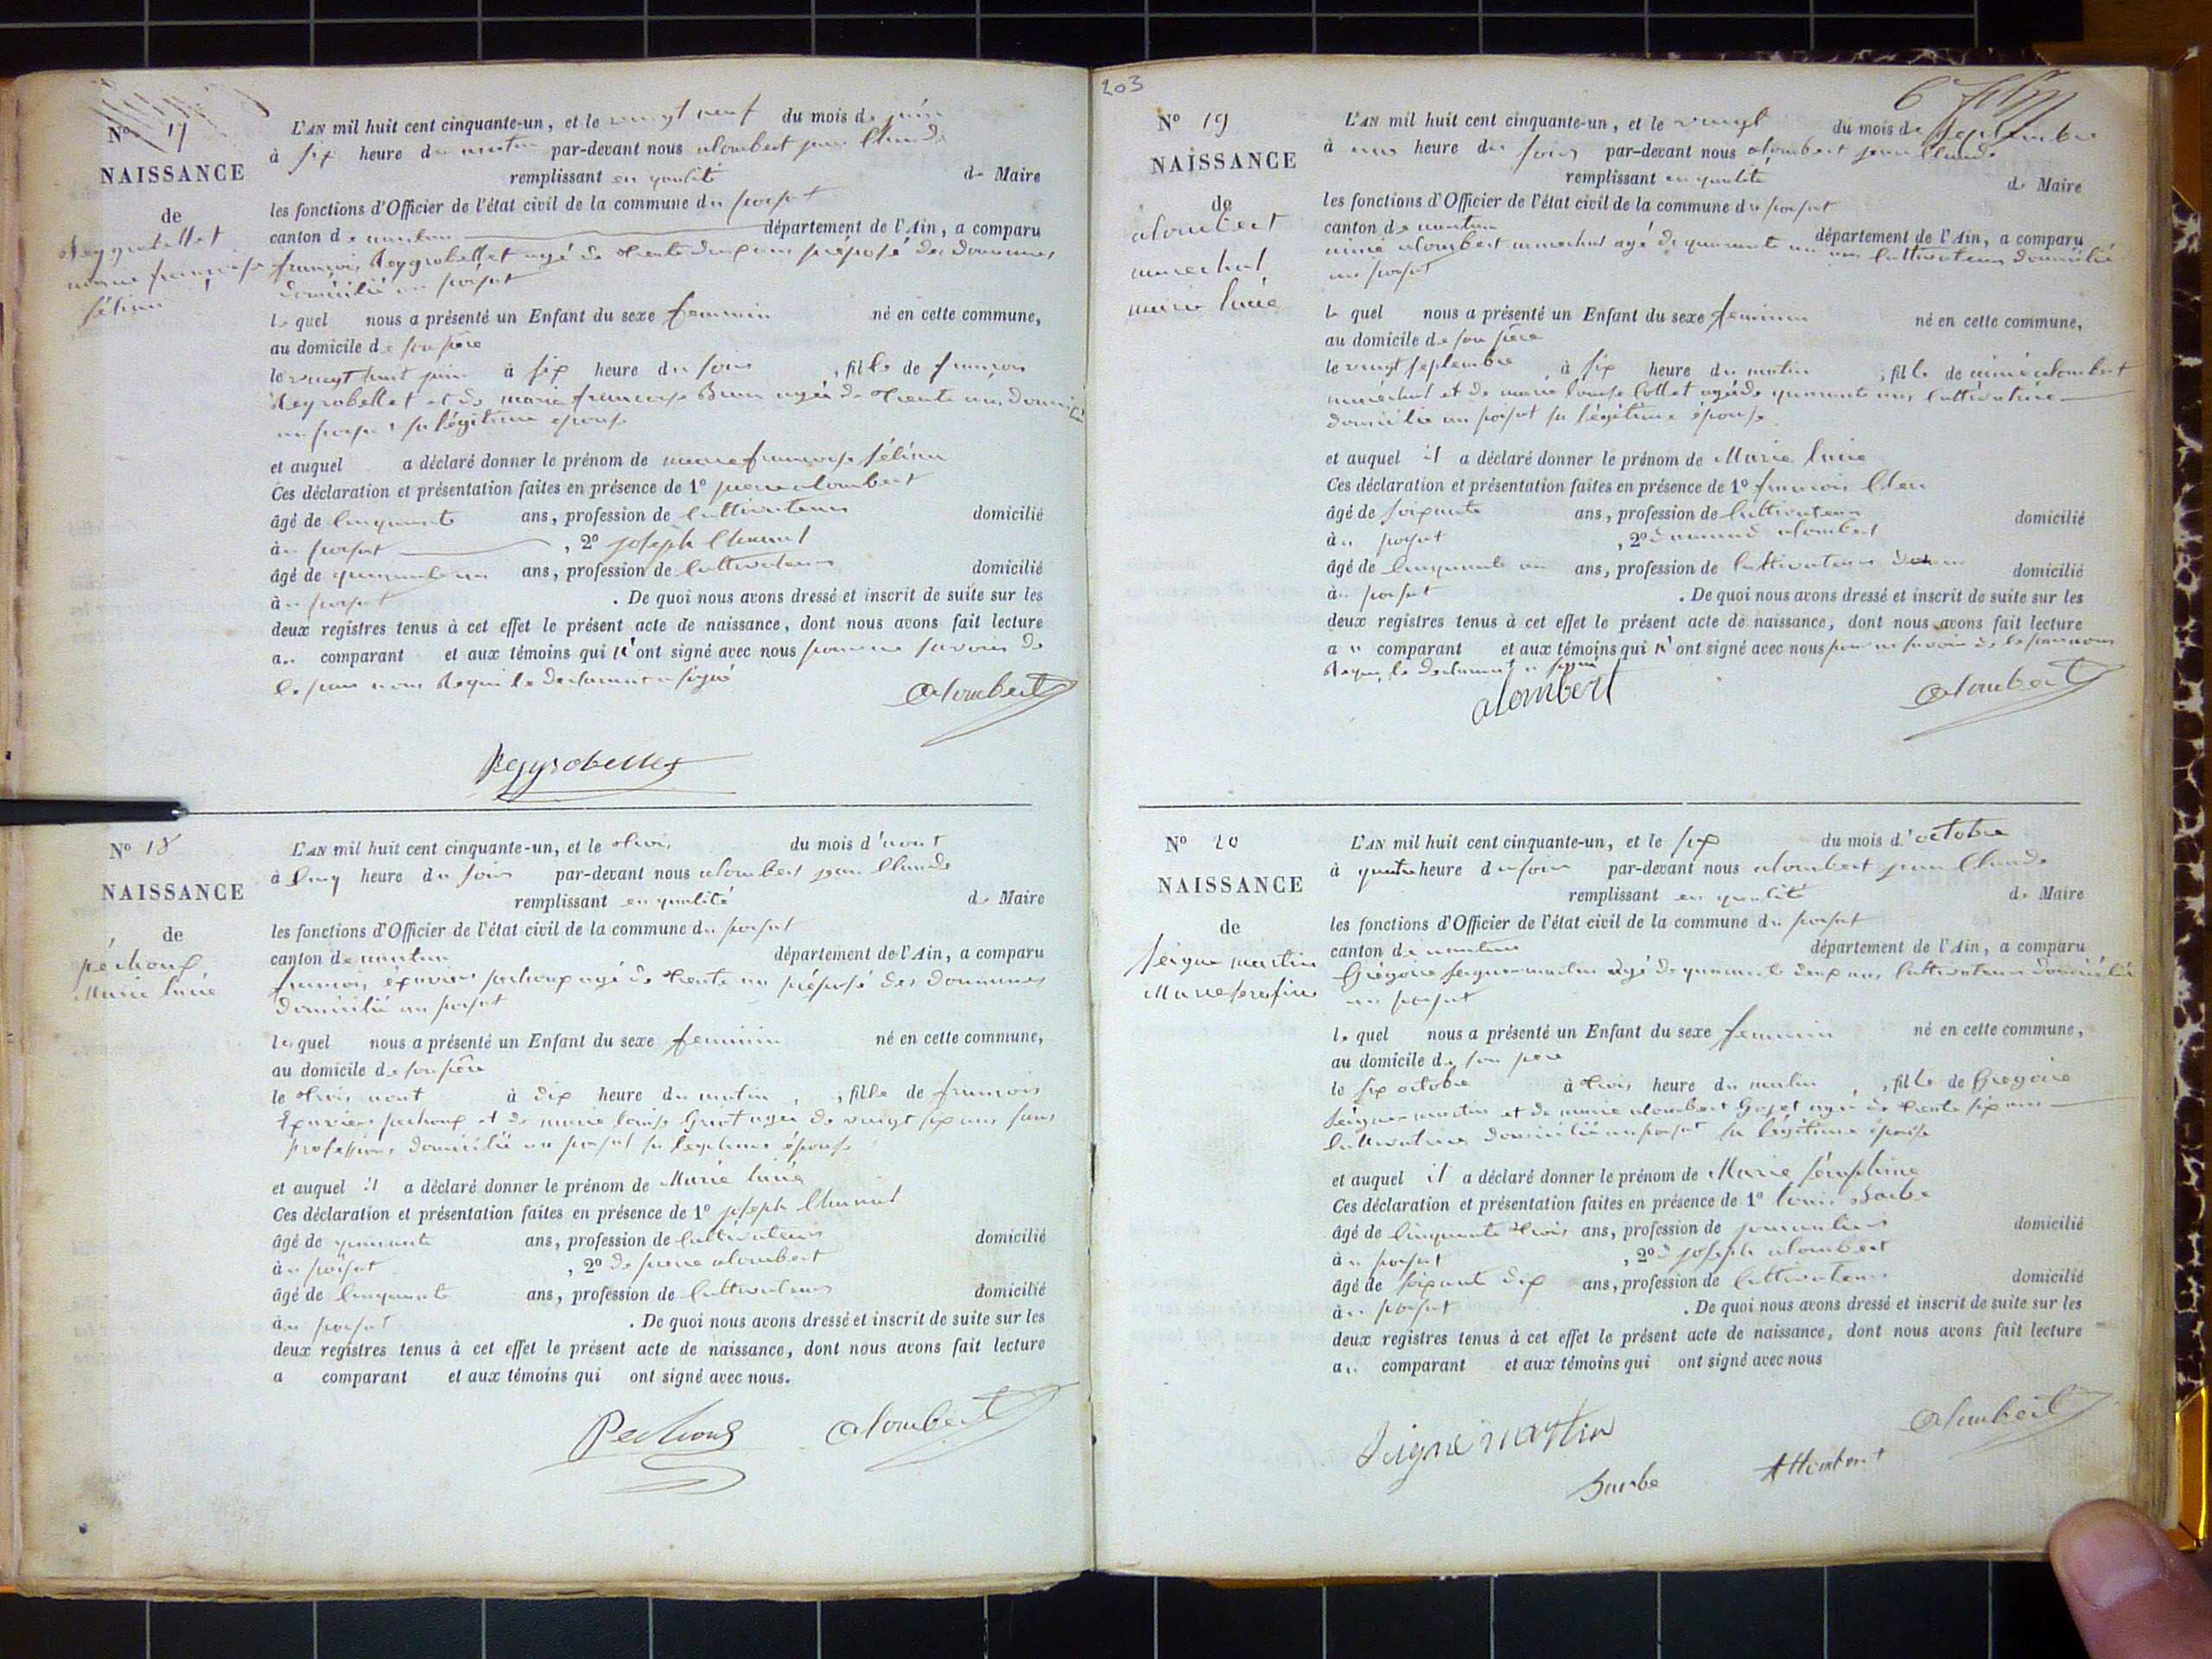 N° 17
NAISSANCE
de
Reygrobellet
marie françoise
félicie
L'AN mil huit cent cinquante-un, et le vingt neuf du mois de juin
à six heure du matin par-devant nous alombert jean Claude
remplissant en qualité de Maire
les fonctions d'Officier de l'état civil de la commune du poisat
canton de nantua département de l'Ain, a comparu
françois Reygrobellet agé de trente deux ans préposé des douannes
domicilié au poisat
le quel nous a présenté un Enfant du sexe feminin né en cette commune,
au domicile de son père
le vingt huit juin à six heure du soir , fille de françois
Reygrobellet et de marie françoise Brun agée de trente ans, domicilié
au poisat sa légitime épouse
et auquel a déclaré donner le prénom de marie françoise
Ces déclaration et présentation faites en présence de 1° pierre alombert
âgé de Cinquante ans, profession de Cultivateur domicilié
au poisat , 2° joseph
âgé de quarante un ans, profession de Cultivateur domicilié
au poisat . De quoi nous avons dressé et inscrit de suite sur les
deux registres tenus à cet effet le présent acte de naissance, dont nous avons fait lecture
au comparant et aux témoins qui n'ont signé avec nous pour ne savoir de
le declarant a signé
alombert
Reygrobellet
N° 18
NAISSANCE
de
péchoux
Marie lucie
L'AN mil huit cent cinquante-un, et le trois du mois d'aout
à Cinq heure du soir par-devant nous alombert jean Claude
remplissant en qualité de Maire
les fonctions d'Officier de l'état civil de la commune du poisat
canton de nantua département de l'Ain, a comparu
françois péchoux agé de trente un préposé des douannes
domicilié au poisat
le quel nous a présenté un Enfant du sexe feminin né en cette commune,
au domicile de son père
le trois aout à dix heure du matin , fille de françois
péchoux et de marie louise agée de vingt six ans sans
profession domicilié au poisat sa légitime épouse
et auquel il a déclaré donner le prénom de Marie lucie
Ces déclaration et présentation faites en présence de 1° joseph
âgé de quarante ans, profession de Cultivateur domicilié
au poisat , 2° de pierre alombert
âgé de Cinquante ans, profession de Cultivateur domicilié
au poisat . De quoi nous avons dressé et inscrit de suite sur les
deux registres tenus à cet effet le présent acte de naissance, dont nous avons fait lecture
a comparant et aux témoins qui ont signé avec nous.
Pechoux alombert
203
N° 19
NAISSANCE
de
alombert
marechal
marie lucie
L'AN mil huit cent cinquante-un, et le vingt du mois de septembre
à une heure du soir par-devant nous alombert jean Claude
remplissant en qualité de Maire
les fonctions d'Officier de l'état civil de la commune du poisat
canton de nantua département de l'Ain, a comparu
aimé alombert marechal agé de quarante un ans Cultivateur domicilié
au poisat
le quel nous a présenté un Enfant du sexe feminin né en cette commune,
au domicile de son père
le vingt septembre à six heure du matin , fille de aimé alombert
maréchal et de marie louise Collet agée de quarante ans Cultivatrice
domicilié au poisat sa légitime épouse
et auquel il a déclaré donner le prénom de Marie lucie
Ces déclaration et présentation faites en présence de 1° françois
âgé de soixante ans, profession de Cultivateur domicilié
au poisat , 2° alombert
âgé de Cinquante un ans, profession de Cultivateur domicilié
au poisat . De quoi nous avons dressé et inscrit de suite sur les
deux registres tenus à cet effet le présent acte de naissance, dont nous avons fait lecture
au comparant et aux témoins qui n'ont signé avec nous pour ne savoir de
le declarant a signé
alombert alombert
N° 20
NAISSANCE
de
Seigne martin
Marie serafine
L'AN mil huit cent cinquante-un, et le six du mois d'octobre
à quatre heure du soir par-devant nous alombert jean Claude
remplissant en qualité de Maire
les fonctions d'Officier de l'état civil de la commune du poisat
canton de nantua département de l'Ain, a comparu
Grégoire Seigne-martin agé de quarante deux ans Cultivateur domicilié
au poisat
le quel nous a présenté un Enfant du sexe feminin né en cette commune,
au domicile de son père
le six octobre à trois heure du matin , fille de Gregoire
Seigne-martin et de marie alombert Goyet agée de trente six ans
Cultivatrice domicilié au poisat sa légitime épouse
et auquel il a déclaré donner le prénom de Marie séraphine
Ces déclaration et présentation faites en présence de 1° louis Barbe
âgé de Cinquante trois ans, profession de journalier domicilié
au poisat , 2° joseph alombert
âgé de soixante dix ans, profession de Cultivateur domicilié
au poisat . De quoi nous avons dressé et inscrit de suite sur les
deux registres tenus à cet effet le présent acte de naissance, dont nous avons fait lecture
au comparant et aux témoins qui ont signé avec nous
Seigne martin alombert
Barbe Allombert